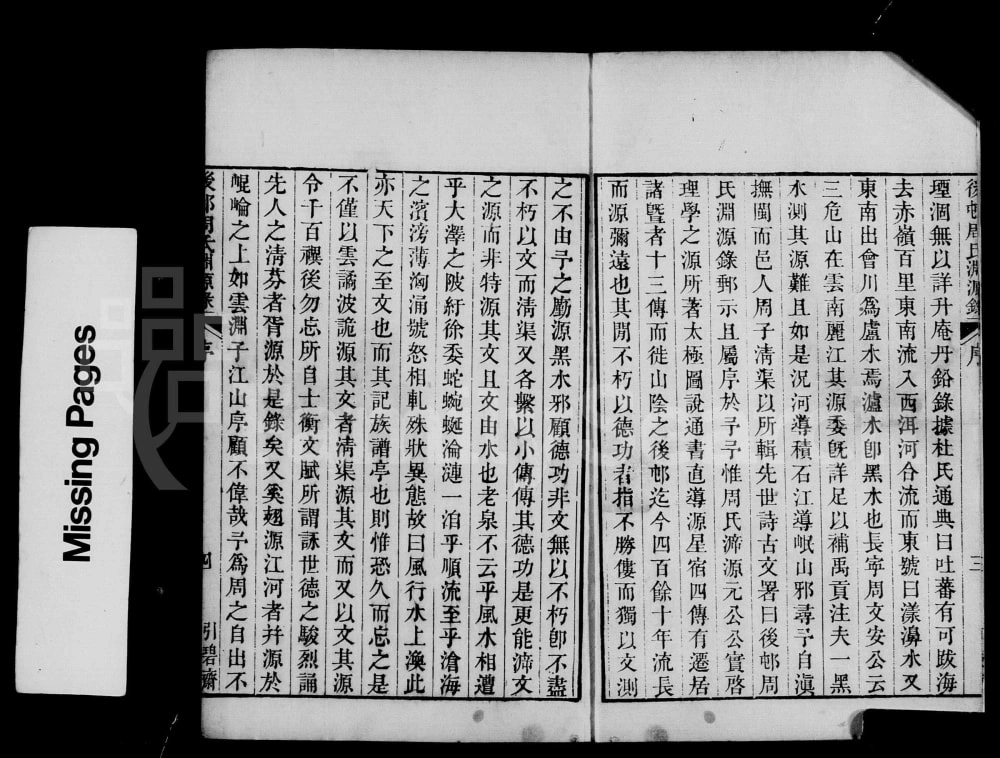 後邨周氏淵源錄 序 三
堙涸無以詳升庵丹鉛錄據杜氏通典曰吐蕃有可跋海
去赤嶺百里東南流入西洱河合流而東號曰漾濞水又
東南出會川爲盧水焉瀘水卽黑水也長寧周文安公云
三危山在雲南麗江其源委旣詳足以補禹貢注夫一黑
水測其源難且如是況河導積石江導岷山邪尋予自滇
撫閩而邑人周子淸渠以所輯先世詩古文署曰後邨周
氏淵源錄郵示且屬序於予予惟周氏溯源元公公實啓
理學之源所著太極圖說通書直導源星宿四傳有遷居
諸曁者十三傳而徙山陰之後邨迄今四百餘十年流長
而源彌遠也其閒不朽以德功者指不勝僂而獨以文測
之不由予之勴源黑水邪顧德功非文無以不朽卽不盡
不朽以文而淸渠又各繫以小傳傳其德功是更能溯文
之源而非特源其文且文由水也老泉不云乎風水相遭
乎大澤之陂紆徐委蛇蜿蜒淪漣一泊乎順流至乎滄海
之濱滂薄洶涌號怒相軋殊狀異態故曰風行水上渙此
亦天下之至文也而其記族譜亭也則惟恐久而忘之是
不僅以雲譎波詭源其文者淸渠源其文而又以文其源
令千百禩後勿忘所自士衡文賦所謂詠世德之駿烈誦
先人之淸芬者胥源於是錄矣又奚翅源江河者幷源於
崐崘之上如雲淵子江山序顧不偉哉予爲周之自出不
後邨周氏淵源錄 序 四 引碧齋
Missing Pages